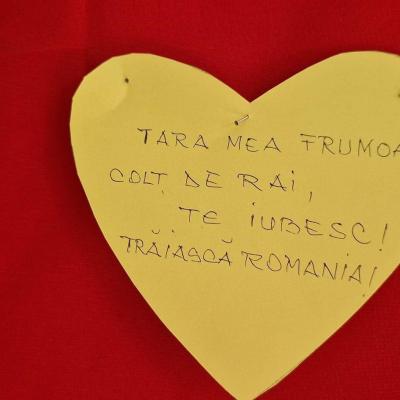 TARA MEA FRUMOA
COLȚ DE RAI,
TE IUBESC!
TRĂIASCĂ ROMANIA!